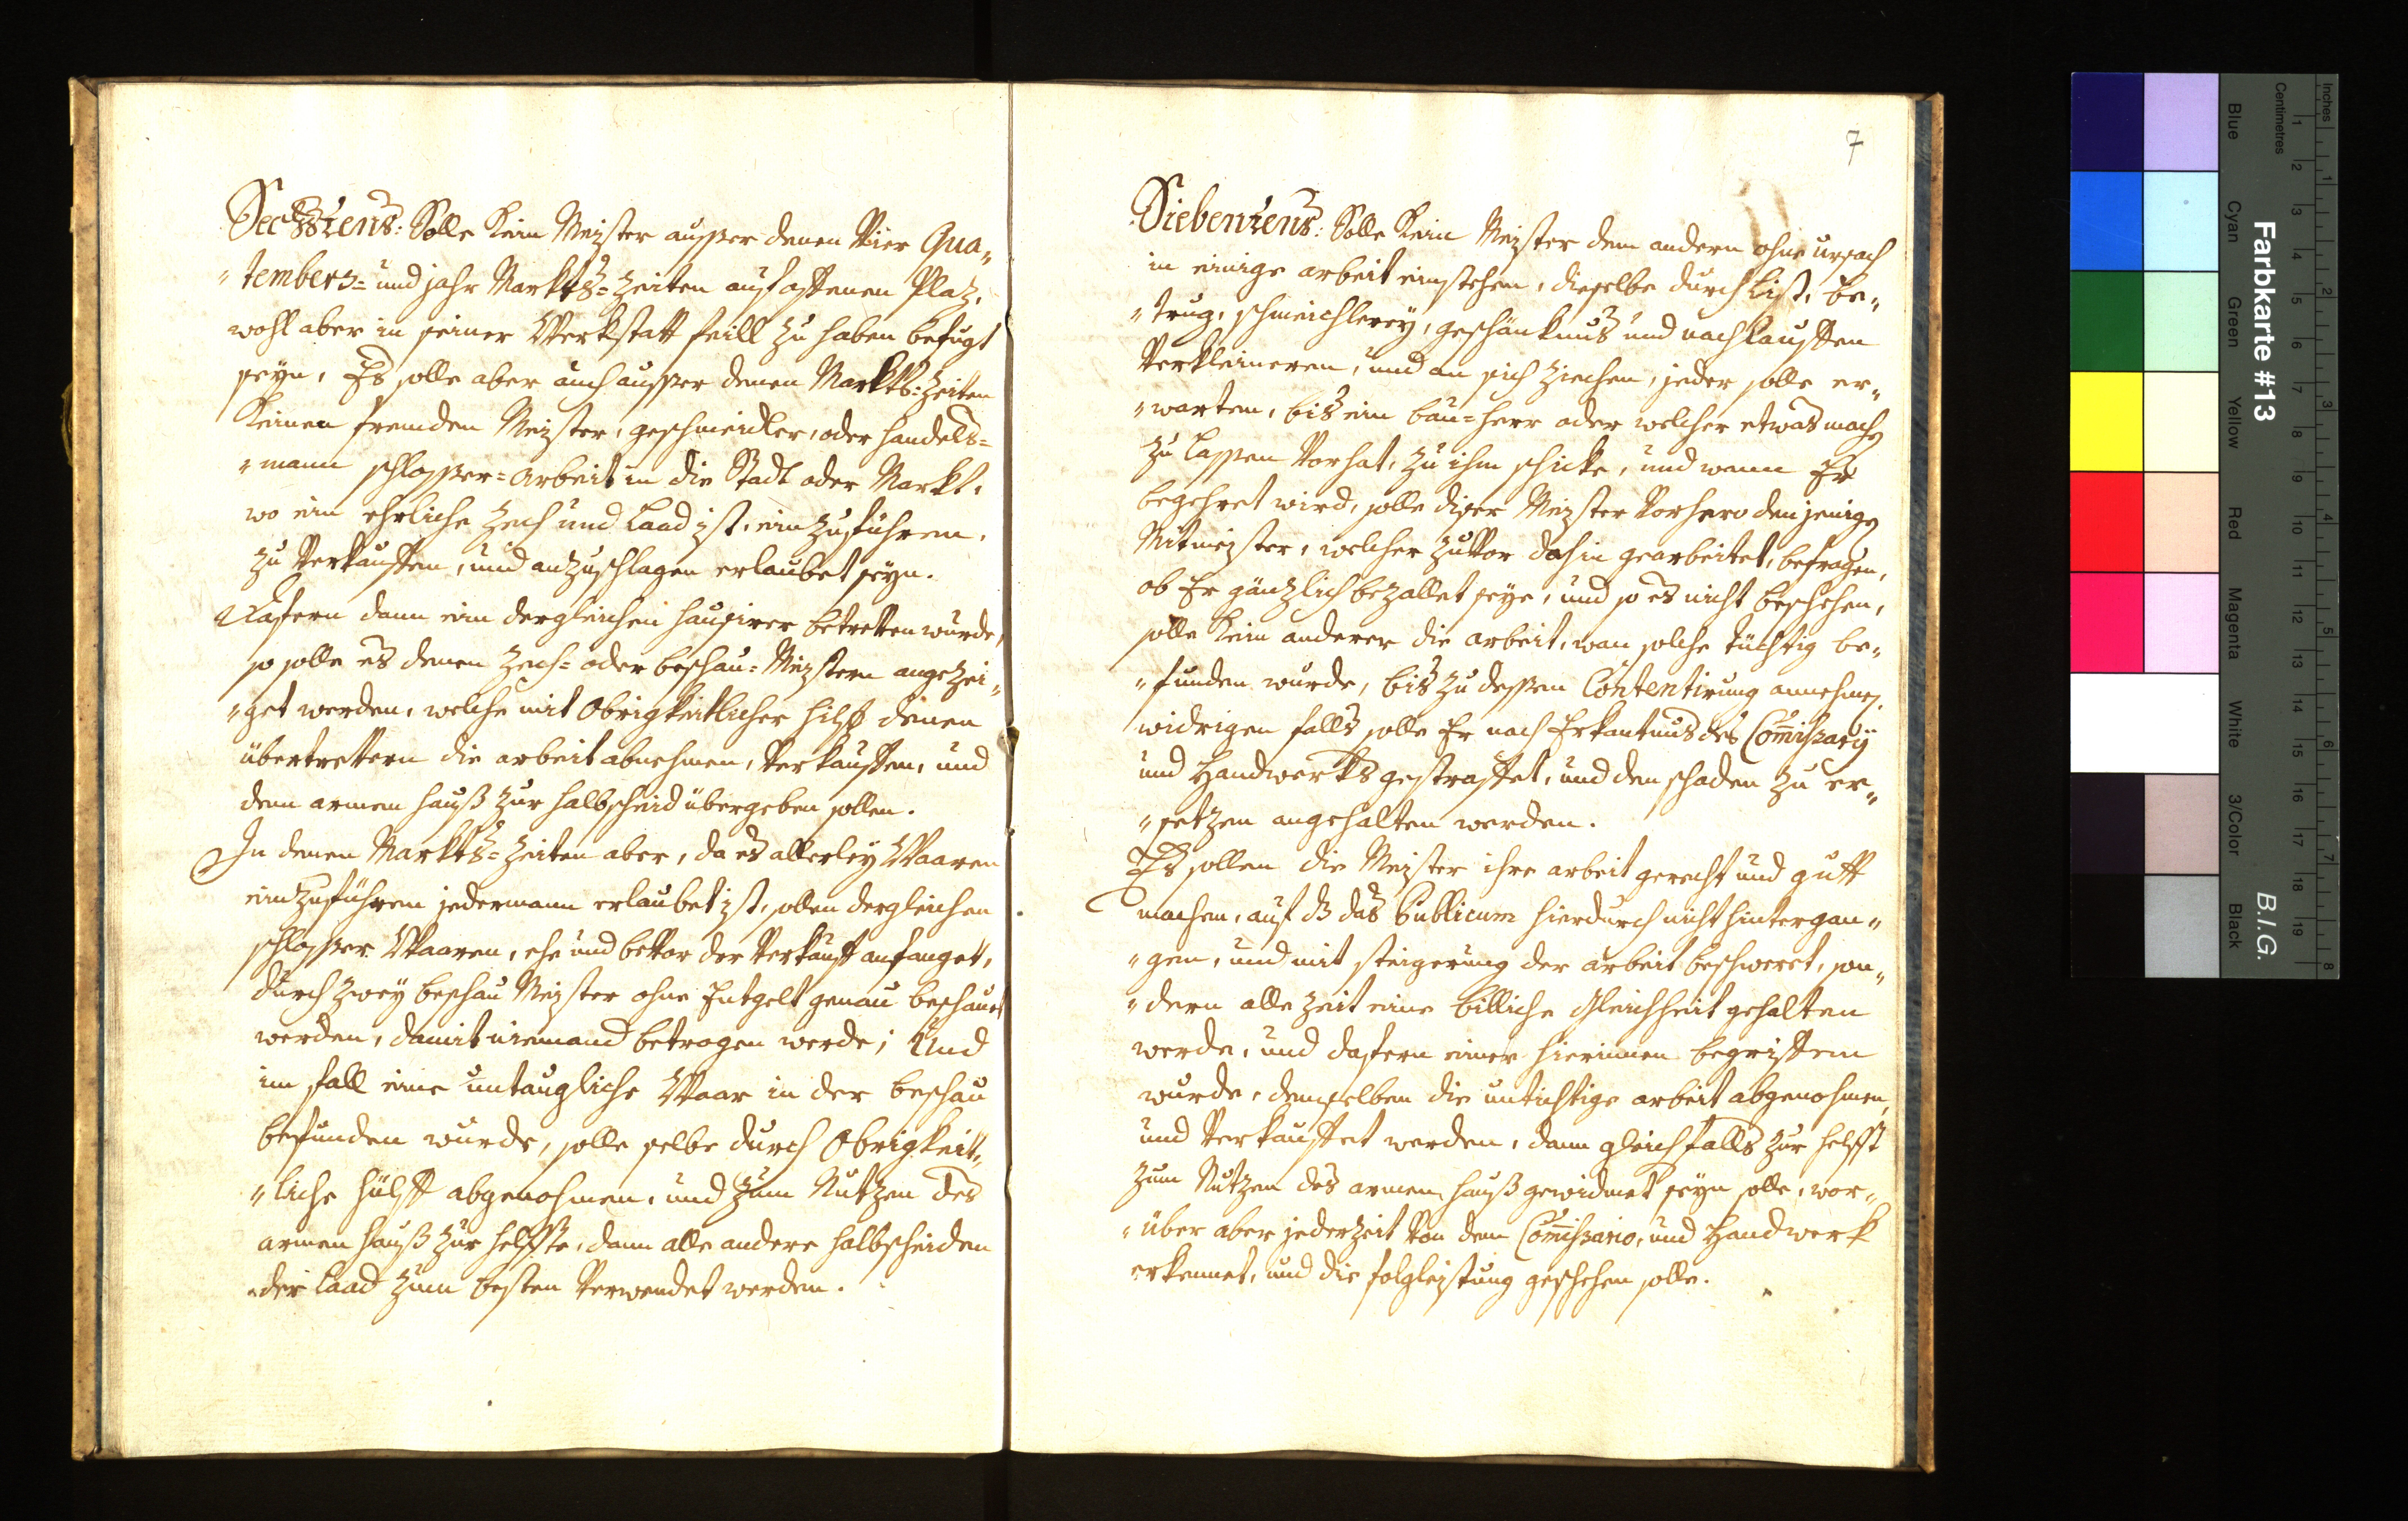 Sechstens: Solle kein Meister ausser denen Vier Qua„
„tembers= und jahr Markts=Zeiten auf offenen Plaz,
wohl aber in seiner Werkstatt feill zu haben befugt
seyn, Es solle aber auch ausser denen Markts=Zeiten
keinen fremden Meister, geschmeidler, oder handels=
„mann schlosser=arbeit in die Stadt oder Markt,
wo ein ehrliche Zech und Laad ist, einzuführen,
zu Verkauffen, und anzuschlagen erlaubet seyn.
Dafern dann ein dergleichen hausirer betretten wurde,
so solle es denen Zech= oder beschau=Meistern angezei„
„get werden, welche mit Obrigkeitlicher hilff denen
übertrettern die arbeit abnehmen, Verkauffen, und
dem armen hauß zur halbscheid übergeben sollen.
In denen Markts=Zeiten aber, da es allerley Waaren
einzuführen jedermann erlaubet ist, sollen dergleichen
schlosser Waaren, ehe und bevor der Verkauff anfanget,
durch zwey beschau Meister ohne Entgelt genau beschauet
werden, damit niemand betrogen werde; Und
im fall eine untaugliche Waar in der beschau
befunden wurde, solle selbe durch Obrigkeit„
„liche hülff abgenohmen, und zum Nutzen des
armen hauß zur helffte, dann alle andere halbscheiden
der Laad zum besten Verwendet werden.
7
Siebentens: Solle kein Meister dem andern ohne ursach
in einige arbeit einstehen, dieselbe durch List, be„
„trug, schmeichlerey, geschänknus und nachlauffen
Verkleineren, und an sich ziechen, jeder solle er„
„warten, bis ein bau=herr oder welcher etwas machen
zu lassen Vorhat, zu ihm schicke, und wann Er
begehret wird, solle diser Meister Vorhero denjenigen
Mitmeister, welcher zuvor dahin gearbeitet, befragen,
ob Er gänzlich bezallet seye, und so es nicht beschehen,
solle kein anderer die arbeit, wan solche tüchtig be„
„funden wurde, bis zu dessen Contentirung annehmen,
widrigen falls solle Er nach Erkantnus des Comissarÿ
und Handwerks gestraffet, und den schaden zu er„
„setzen angehalten werden.
Es sollen die Meister ihre arbeit gerecht und gutt
machen, auf dz das Publicum hierdurch nicht hintergan„
„gen, und mit steigerung der arbeit beschweret, son„
„dern alle zeit eine billiche Gleichheit gehalten
werde, und dafern einer hierinnen begriffen
wurde, demselben die untichtige arbeit abgenohmen,
und Verkauffet werden, dann gleichfalls zur helfft
zum Nutzen des armen hauß gewidmet seyn solle, wor„
„über aber jederzeit Von dem Comissario, und Handwerk
erkennet, und die folgleistung geschehen solle.
Farbkarte #13
B.I.G.
Inches
Centimetres
1 2 3 4 5 6 7 8
1 2 3 4 5 6 7 8 9 10 11 12 13 14 15 16 17 18 19
Blue
Cyan
Green
Yellow
Red
Magenta
White
3/Color
Black